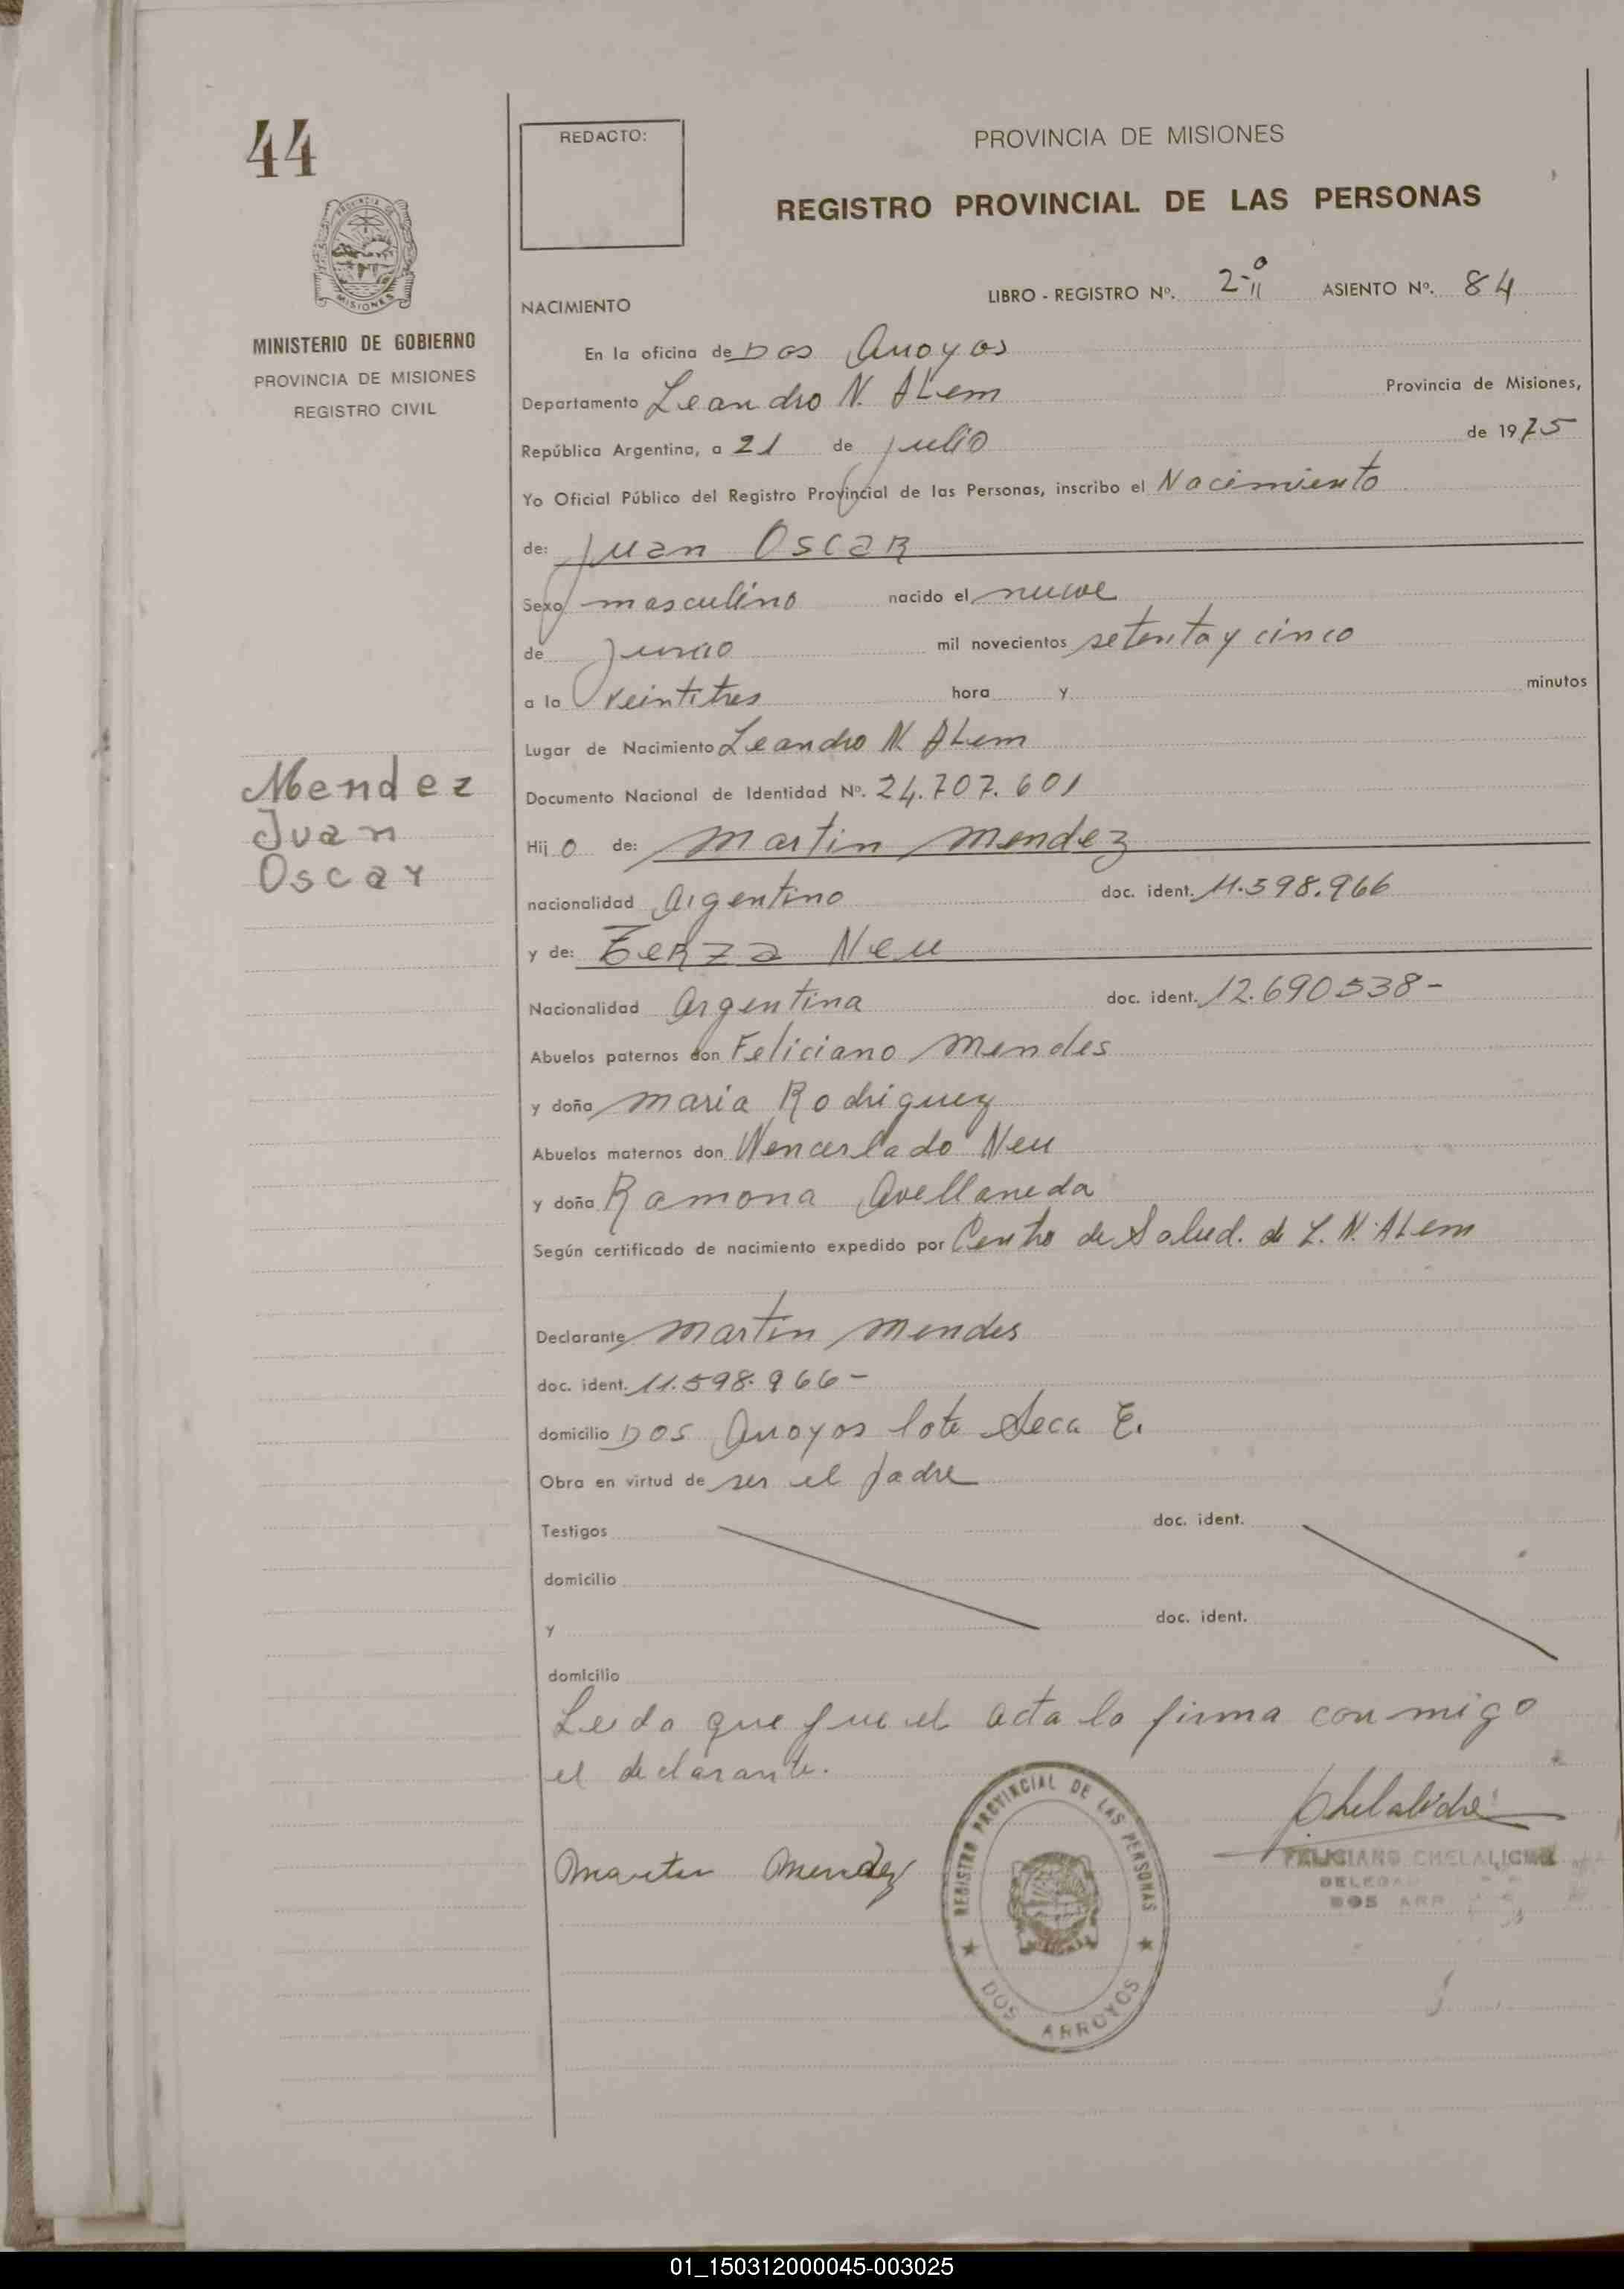 44
REDACTO:
PROVINCIA DE MISIONES
REGISTRO PROVINCIAL DE LAS PERSONAS
PROVINCIA DE
MISIONES
MINISTERIO DE GOBIERNO
PROVINCIA DE MISIONES
REGISTRO CIVIL
LIBRO - REGISTRO Nº. 2º ASIENTO Nº. 84
NACIMIENTO
En la oficina de Dos Arroyos
Departamento Leandro N. ALem Provincia de Misiones,
República Argentina, a 21 de julio de 1975
Yo Oficial Público del Registro Provincial de las Personas, inscribo el Nacimiento
de: Juan Oscar
Sexo masculino nacido el nueve
de junio mil novecientos setenta y cinco
a la veintitres hora y minutos
Lugar de Nacimiento Leandro N. ALem
Documento Nacional de Identidad Nº. 24.707.601
Mendez
Juan
Oscar
Hij o de: Martin Mendez
nacionalidad Argentino doc. ident. 11.598.966
y de: Zerza Neu
Nacionalidad Argentina doc. ident. 12.690538-
Abuelos paternos don Feliciano Mendes
y doña Maria Rodriguez
Abuelos maternos don Wencerlado Neu
y doña Ramona Avellaneda
Según certificado de nacimiento expedido por Centro de Salud. de L. N. ALem
Declarante Martin Mendes
doc. ident. 11.598.966-
domicilio Dos Arroyos lote Seca E.
Obra en virtud de ser el padre
Testigos doc. ident.
domicilio
y doc. ident.
domicilio
Leida que fue el acta la firma conmigo
el declarante.
Martin Mendez
REGISTRO PROVINCIAL DE LAS PERSONAS
DOS ARROYOS
Chelaliche
FELICIANO CHELALICHE
DELEGA
DOS ARR
01_150312000045-003025